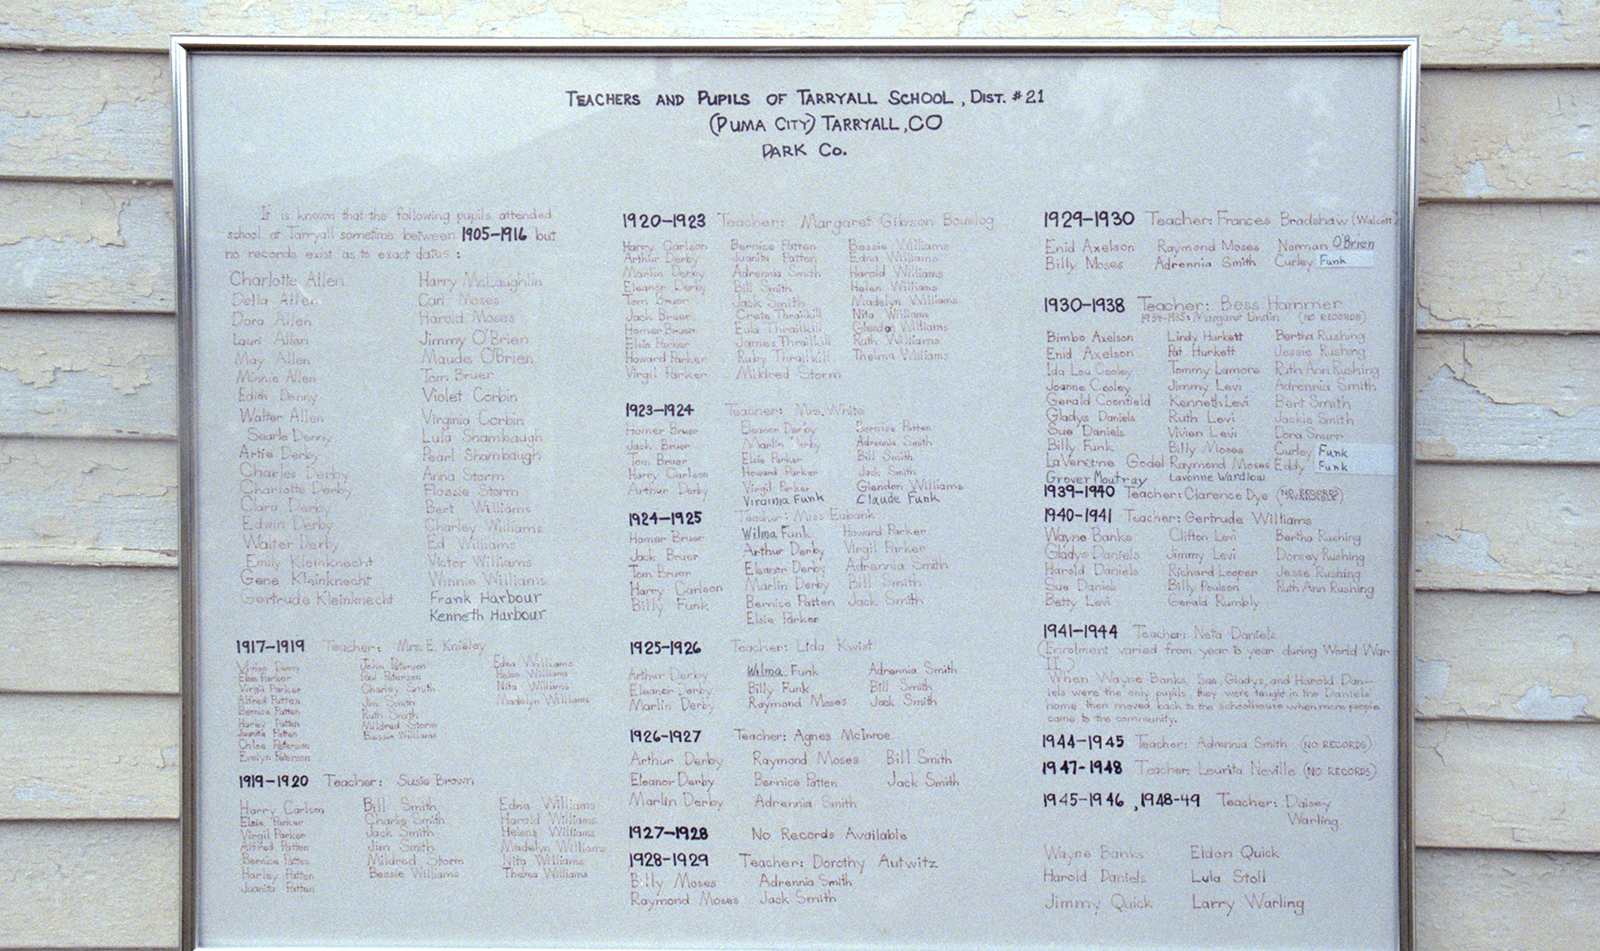 TEACHERS AND PUPILS OF TARRYALL SCHOOL, DIST. #21
(PUMA CITY) TARRYALL, CO
PARK CO.
It is known that the following pupils attended
school at Tarryall sometime between 1905-1916 but
no records exist as to exact dates:
Charlotte Allen
Della Allen
Dora Allen
Lauri Allen
May Allen
Minnie Allen
Edith Denny
Walter Allen
Searle Denny
Artie Derby
Charles Derby
Charlotte Derby
Clara Derby
Edwin Derby
Walter Derby
Emily Kleinknecht
Gene Kleinknecht
Gertrude Kleinknecht
Harry McLaughlin
Carl Moses
Harold Moses
Jimmy O'Brien
Maude O'Brien
Tom Bruer
Violet Corbin
Virginia Corbin
Lula Shambaugh
Pearl Shambaugh
Anna Storm
Flossie Storm
Bert Williams
Charley Williams
Ed Williams
Victor Williams
Winnie Williams
Frank Harbour
Kenneth Harbour
1917-1919 Teacher: Mrs. E. Knisley
Denny
Elsie Parker
Virgil Parker
Alfred Patten
Bernice Patten
Harley Patten
Juanita Patten
Chloe Peterson
Evelyn Peterson
John Peterson
Paul Peterson
Charley Smith
Jim Smith
Ruth Smith
Mildred Storm
Bessie Williams
Edna Williams
Helen Williams
Nita Williams
Madelyn Williams
1919-1920 Teacher: Susie Brown
Harry Carlson
Elsie Parker
Virgil Parker
Alfred Patten
Bernice Patten
Harley Patten
Juanita Patten
Bill Smith
Charlie Smith
Jack Smith
Jim Smith
Mildred Storm
Bessie Williams
Edna Williams
Harold Williams
Helene Williams
Madelyn Williams
Nita Williams
Thelma Williams
1920-1923 Teacher: Margaret Gibson Bouslog
Harry Carlson
Arthur Derby
Marlin Derby
Eleanor Derby
Tom Bruer
Jack Bruer
Homer Bruer
Elsie Parker
Howard Parker
Virgil Parker
Bernice Patten
Juanita Patten
Adrennia Smith
Bill Smith
Jack Smith
Crate Thrailkill
Eula Thrailkill
James Thrailkill
Ruby Thrailkill
Mildred Storm
Bessie Williams
Edna Williams
Harold Williams
Helen Williams
Madelyn Williams
Nita Williams
Glendon Williams
Ruth Williams
Thelma Williams
1923-1924 Teacher: Mrs. White
Homer Bruer
Jack Bruer
Tom Bruer
Harry Carlson
Arthur Derby
Eleanor Derby
Marlin Derby
Elsie Parker
Howard Parker
Virgil Parker
Virginia Funk
Bernice Patten
Adrennia Smith
Bill Smith
Jack Smith
Glendon Williams
Claude Funk
1924-1925 Teacher: Miss Eubank
Homer Bruer
Jack Bruer
Tom Bruer
Harry Carlson
Billy Funk
Wilma Funk
Arthur Derby
Eleanor Derby
Marlin Derby
Bernice Patten
Elsie Parker
Howard Parker
Virgil Parker
Adrennia Smith
Bill Smith
Jack Smith
1925-1926 Teacher: Lida Kwist
Arthur Derby
Eleanor Derby
Marlin Derby
Wilma Funk
Billy Funk
Raymond Moses
Adrennia Smith
Bill Smith
Jack Smith
1926-1927 Teacher: Agnes McInroe
Arthur Derby
Eleanor Derby
Marlin Derby
Raymond Moses
Bernice Patten
Adrennia Smith
Bill Smith
Jack Smith
1927-1928 No Records Available
1928-1929 Teacher: Dorothy Autwitz
Billy Moses
Raymond Moses
Adrennia Smith
Jack Smith
1929-1930 Teacher: Frances Bradshaw (Walcott)
Enid Axelson
Billy Moses
Raymond Moses
Adrennia Smith
Norman O'Brien
Curley Funk
1930-1938 Teacher: Bess Hammer
1934-1935: Margaret (NO RECORDS)
Bimbo Axelson
Enid Axelson
Ida Lou Cooley
Joanne Cooley
Gerald Cornfield
Gladys Daniels
Sue Daniels
Billy Funk
LaVerne Godel
Grover Moutray
Lindy Hurkett
Pat Hurkett
Tommy Lamore
Jimmy Levi
Kenneth Levi
Ruth Levi
Vivien Levi
Billy Moses
Raymond Moses
Lavonne Wardlow
Bertha Rushing
Jessie Rushing
Ruth Ann Rushing
Adrennia Smith
Bert Smith
Jackie Smith
Dora Snurr
Curley Funk
Eddy Funk
1939-1940 Teacher: Clarence Dye (NO RECORDS)
1940-1941 Teacher: Gertrude Williams
Wayne Banks
Gladys Daniels
Harold Daniels
Sue Daniels
Betty Levi
Clifton Levi
Jimmy Levi
Richard Looper
Billy Poulson
Gerald Rumbly
Bertha Rushing
Dorsey Rushing
Jesse Rushing
Ruth Ann Rushing
1941-1944 Teacher: Neta Daniels
(Enrolment varied from year to year during World War
II.)
When Wayne Banks, Sue, Gladys, and Harold Dan-
iels were the only pupils, they were taught in the Daniels
home then moved back to the schoolhouse when more people
came to the community.
1944-1945 Teacher: Adrennia Smith (NO RECORDS)
1947-1948 Teacher: Leurita Neville (NO RECORDS)
1945-1946, 1948-49 Teacher: Daisey
Warling
Wayne Banks
Harold Daniels
Jimmy Quick
Eldon Quick
Lula Stoll
Larry Warling